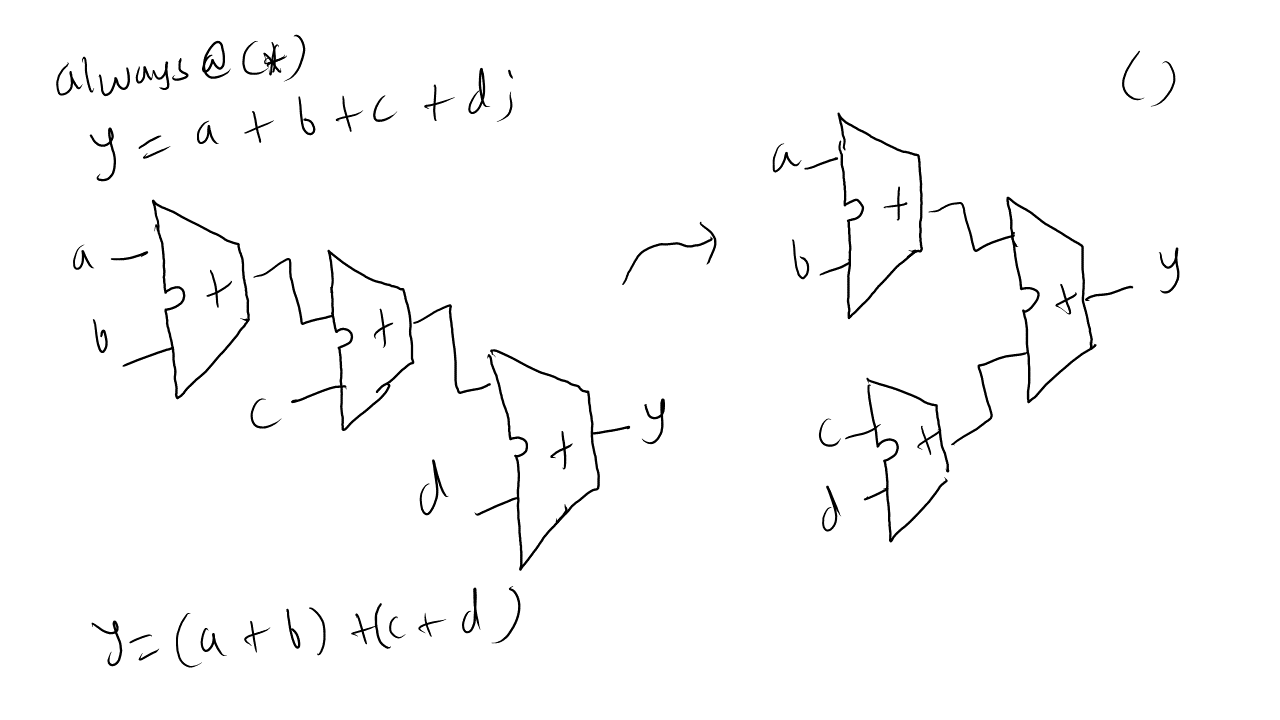 always@(*)
y = a + b + c + d;
( )
a
b
+
+
c
+
d
y
a
b
+
+
y
c
d
+
y = (a + b) + (c + d)